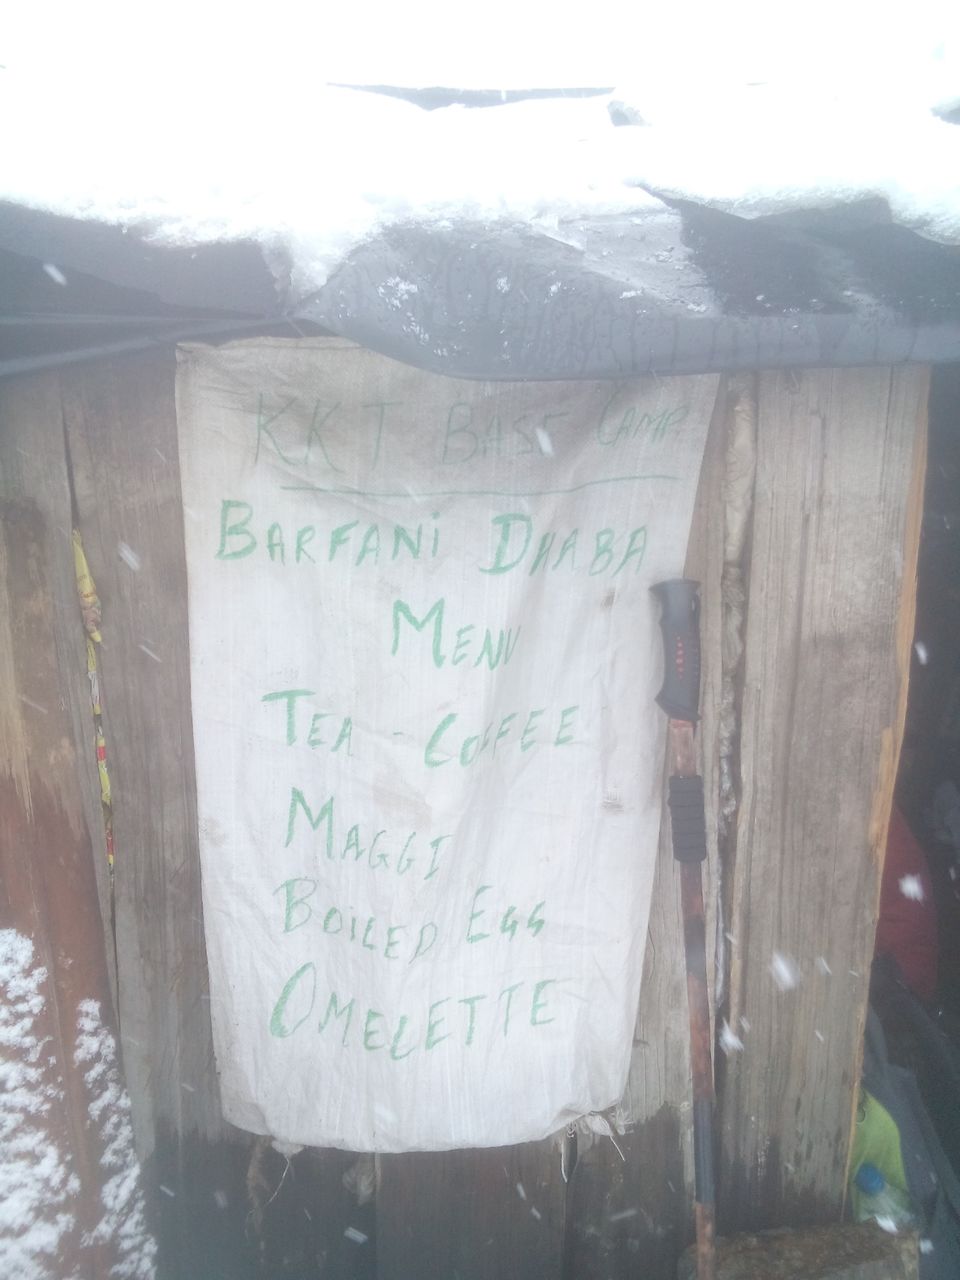 KKT BASE CAMP.
BARFANi DHABA
MENU
TEA - COFFEE
MAGGI
BOiLED EGG
OMELETTE